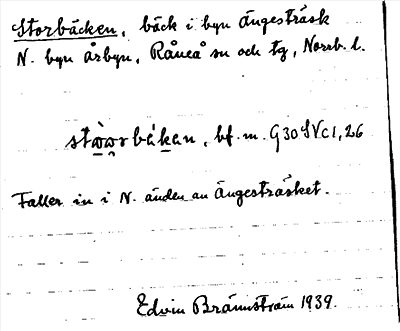 Storbäcken, bäck i byn Ängesträsk
N. byn Årbyn, Råneå sn och tg, Norrb. l.
bf. m. G 30 SVc 1, 26
Faller in i N. änden av Ängesträsket.
Edvin Brännström 1939.